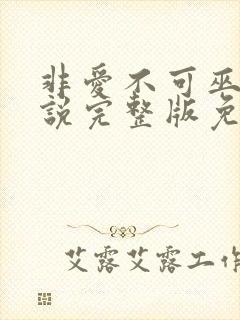 非爱不可巫
说完整版免
艾露艾露工作